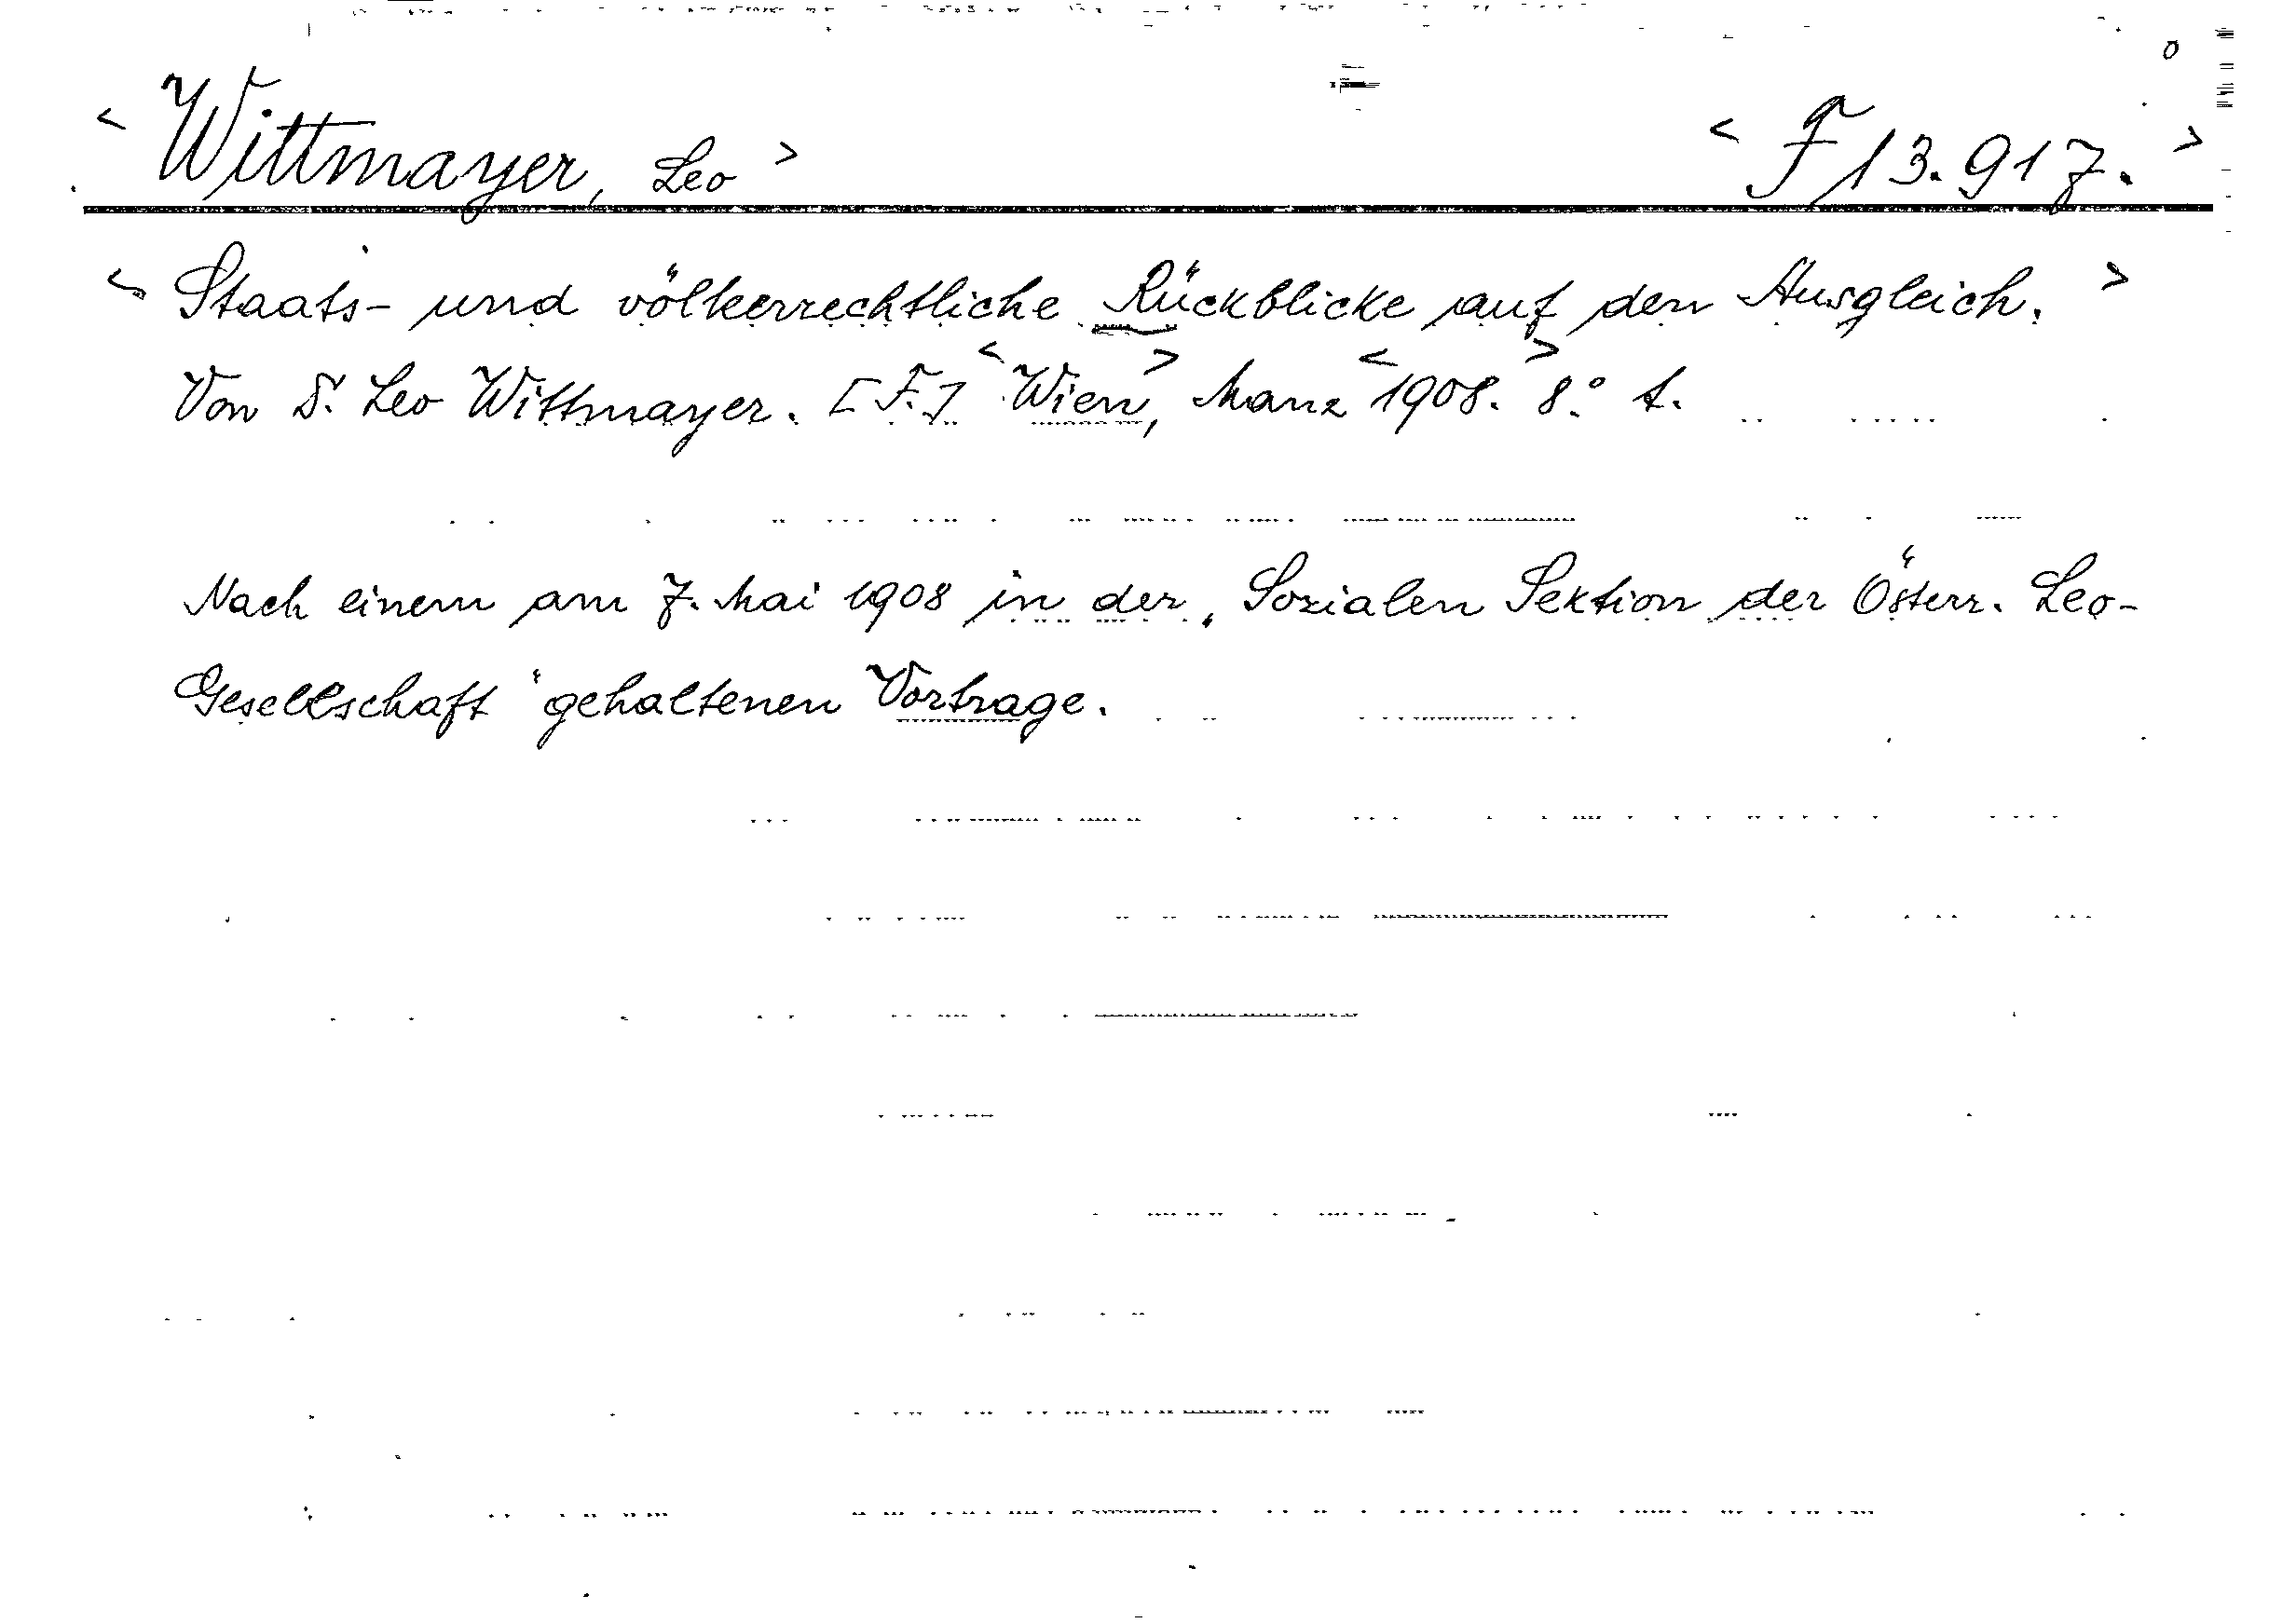 < Wittmayer, Leo > < F 13.917. >
< Staats- und völkerrechtliche Rückblicke auf den Ausgleich. >
Von Dr. Leo Wittmayer. [F.] <Wien>, Manz <1908.> 8.°
Nach einem am 7. Mai 1908 in der „Sozialen Sektion der Österr. Leo-
Gesellschaft“ gehaltenen Vortrage.